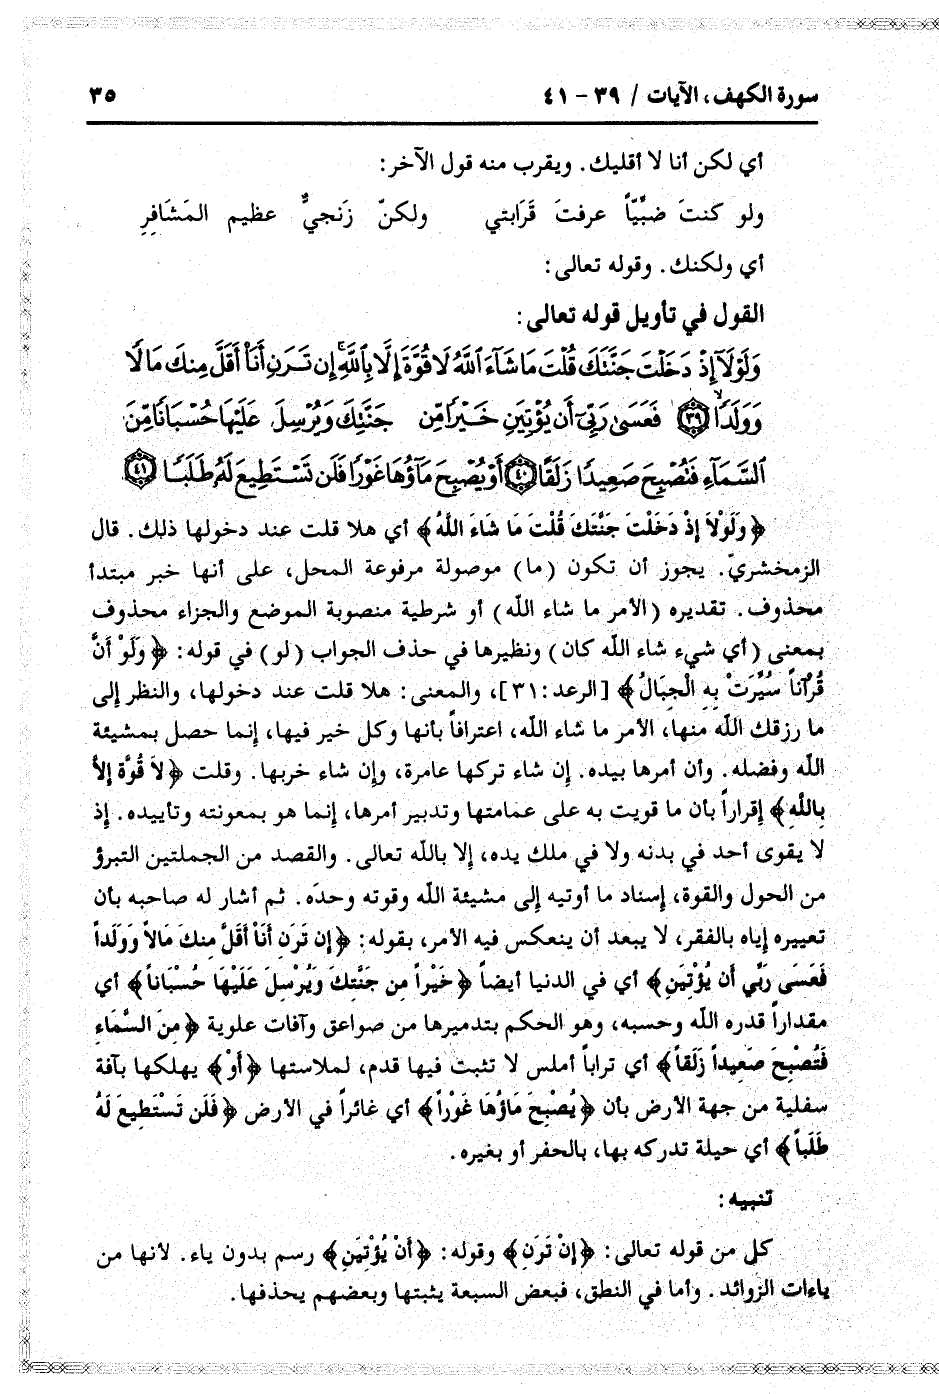 سورة الكهف، الآيات / ٣٩ - ٤١
٣٥
أي لكن أنا لا أقليك. ويقرب منه قول الآخر:
ولو كنتَ ضبِّيّاً عرفتَ قَرَابتي ولكنّ زَنجيٌّ عظيم المَشَافِرِ
أي ولكنك. وقوله تعالى:
القول في تأويل قوله تعالى:
وَلَوْلَآ إِذْ دَخَلْتَ جَنَّتَكَ قُلْتَ مَا شَآءَ ٱللَّهُ لَا قُوَّةَ إِلَّا بِٱللَّهِ ۚ إِن تَرَنِ أَنَا۠ أَقَلَّ مِنكَ مَالًا
وَوَلَدًا ۝٣٩ فَعَسَىٰ رَبِّىٓ أَن يُؤْتِيَنِ خَيْرًا مِّن جَنَّتِكَ وَيُرْسِلَ عَلَيْهَا حُسْبَانًا مِّنَ
ٱلسَّمَآءِ فَتُصْبِحَ صَعِيدًا زَلَقًا ۝٤٠ أَوْ يُصْبِحَ مَآؤُهَا غَوْرًا فَلَن تَسْتَطِيعَ لَهُۥ طَلَبًا ۝٤١
﴿وَلَوْلاَ إِذْ دَخَلْتَ جَنَّتَكَ قُلْتَ مَا شَاءَ اللَّهُ﴾ أي هلا قلت عند دخولها ذلك. قال
الزمخشريّ. يجوز أن تكون (ما) موصولة مرفوعة المحل، على أنها خبر مبتدأ
محذوف. تقديره (الأمر ما شاء اللّه) أو شرطية منصوبة الموضع والجزاء محذوف
بمعنى (أي شيء شاء اللّه كان) ونظيرها في حذف الجواب (لو) في قوله: ﴿وَلَوْ أَنَّ
قُرْآناً سُيِّرَتْ بِهِ الْجِبَالُ﴾ [الرعد: ٣١]، والمعنى: هلا قلت عند دخولها، والنظر إلى
ما رزقك اللّه منها، الأمر ما شاء اللّه، اعترافاً بأنها وكل خير فيها، إنما حصل بمشيئة
اللّه وفضله. وأن أمرها بيده. إن شاء تركها عامرة، وإن شاء خربها. وقلت ﴿لاَ قُوَّةَ إِلاَّ
بِاللَّهِ﴾ إقراراً بأن ما قويت به على عمامتها وتدبير أمرها، إنما هو بمعونته وتأييده. إذ
لا يقوى أحد في بدنه ولا في ملك يده، إلا بالله تعالى. والقصد من الجملتين التبرؤ
من الحول والقوة، إسناد ما أوتيه إلى مشيئة اللّه وقوته وحدّه. ثم أشار له صاحبه بأن
تعييره إياه بالفقر، لا يبعد أن ينعكس فيه الأمر، بقوله: ﴿إِن تَرَنِ أَنَاْ أَقَلَّ مِنكَ مَالاً وَوَلَداً
فَعَسَى رَبِّي أَن يُؤْتِيَنِ﴾ أي في الدنيا أيضاً ﴿خَيْراً مِن جَنَّتِكَ وَيُرْسِلَ عَلَيْهَا حُسْبَاناً﴾ أي
مقداراً قدره اللّه وحسبه، وهو الحكم بتدميرها من صواعق وآفات علوية ﴿مِنَ السَّمَاءِ
فَتُصْبِحَ صَعِيداً زَلَقاً﴾ أي تراباً أملس لا تثبت فيها قدم، لملاستها ﴿أَوْ﴾ يهلكها بآفة
سفلية من جهة الأرض بأن ﴿يُصْبِحَ مَاؤُهَا غَوْراً﴾ أي غائراً في الأرض ﴿فَلَن تَسْتَطِيعَ لَهُ
طَلَباً﴾ أي حيلة تدركه بها، بالحفر أو بغيره.
تنبيه:
كل من قوله تعالى: ﴿إِنْ تَرَنِ﴾ وقوله: ﴿أَنْ يُؤْتِيَنِ﴾ رسم بدون ياء. لأنها من
ياءات الزوائد. وأما في النطق، فبعض السبعة يثبتها وبعضهم يحذفها.